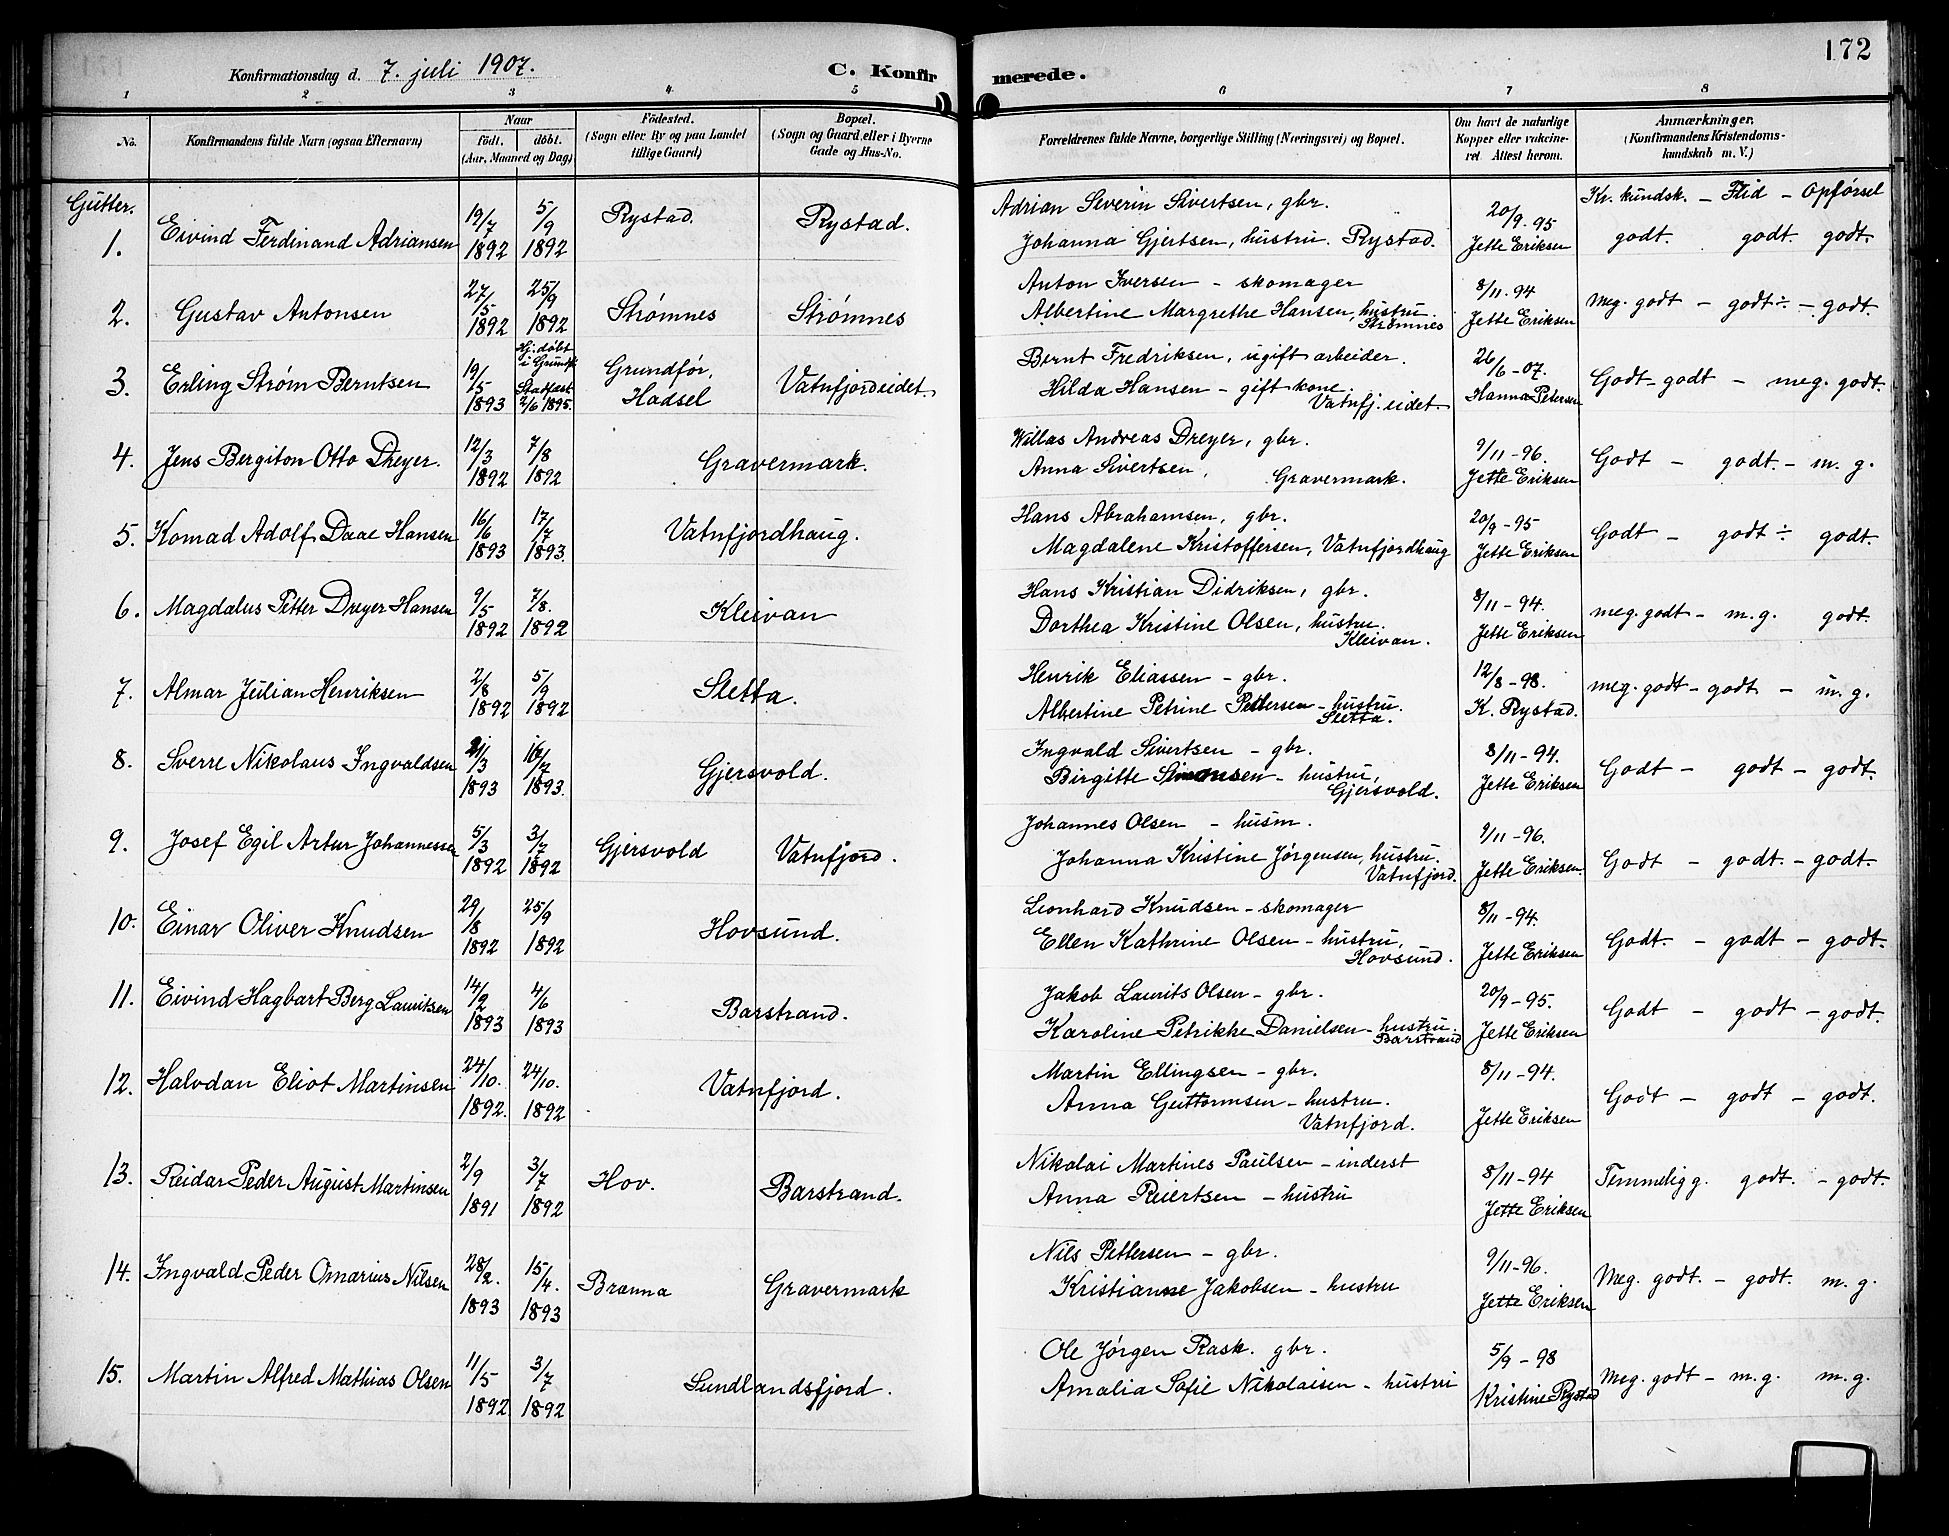 172
Konfirmationsdag d. 7. juli 1907.
C. Konfirmerede.
1 2 3 4 5 6 7 8
No.
Konfirmandens fulde Navn (ogsaa Efternavn)
Naar
født. døbt.
(Aar, Maaned og Dag)
Fødested.
(Sogn eller By og paa Landet
tillige Gaard)
Bopæl.
(Sogn og Gaard eller i Byerne
Gade og Hus-No.
Forældrenes fulde Navne, borgerlige Stilling (Næringsvei) og Bopæl.
Om havt de naturlige
Kopper eller vakcine-
ret. Attest herom.
Anmærkninger.
(Konfirmandens Kristendoms-
kundskab m. V.)
Gutter.
Kr. kundsk. – Flid – Opførsel
1. Eivind Ferdinand Adriansen 19/7 1892 5/9 1892 Rystad. Rystad.
Adrian Severin Sivertsen, gbr.
Johanna Gjertsen, hustru. Rystad.
20/9. 95 Jette Eriksen
godt. godt. godt.
2. Gustav Antonsen 27/5 1892 25/9 1892 Strømnes Strømnes
Anton Iversen – skomager
Albertine Margrethe Hansen, hustru. Strømnes
8/11. 94 Jette Eriksen
Meg. godt – godt ÷ – godt.
3. Erling Strøm Berntsen 19/5 1893 Hj. døbt i Grundf. Stadfæst. 2/6 1895. Grundfør, Hadsel Vatnfjordeidet.
Bernt Fredriksen, ugift arbeider.
Hilda Hansen – gift kone. Vatnfj. eidet.
26/6 – 07. Hanna Petersen
Godt – godt – meg. godt.
4. Jens Bergiton Otto Dreyer. 12/3 1892 7/8 1892 Gravermark.
Willas Andreas Dreyer, gbr.
Anna Sivertsen, Gravermark.
9/11 – 96. Jette Eriksen
Godt – godt. – m. g.
5. Konrad Adolf Daae Hansen 16/6 1893 17/7 1893. Vatnfjordhaug.
Hans Abrahamsen, gbr.
Magdalene Kristoffersen, Vatnfjordhaug
20/9 – 95 Jette Eriksen
Godt – godt ÷ godt.
6. Magdalus Petter Dreyer Hansen 9/5 1892 7/8. 1892 Kleivan
Hans Kristian Didriksen, gbr.
Dorthea Kristine Olsen, hustru. Kleivan.
8/11 – 94. Jette Eriksen
meg. godt – m. g. godt.
7. Almar Julian Henriksen 2/8 1892 5/9 1892 Sletta.
Henrik Eliassen – gbr.
Albertine Petrine Pettersen – hustru. Sletta.
12/8 – 98. K. Rystad.
meg. godt – godt – m. g.
8. Sverre Nikolaus Ingvaldsen 1893 1893. Gjersvold.
Ingvald Sivertsen – gbr.
Birgitte Simonsen – hustru, Gjersvold.
8/11 – 94. Jette Eriksen
Godt – godt – godt.
9. Josef Egil Artur Johannessen 5/3 1892 3/7 1892 Gjersvold Vatnfjord.
Johannes Olsen – husm.
Johanna Kristine Jørgensen, hustru. Vatnfjord.
9/11 – 96. Jette Eriksen.
Godt – godt. – godt.
10. Einar Oliver Knudsen 29/8 1892 25/9 1892 Hovsund.
Leonhard Knudsen – skomager
Ellen Kathrine Olsen – hustru, Hovsund.
8/11 – 94. Jette Eriksen
Godt. – godt – godt.
11. Eivind Hagbart Berg Lauritsen 14/2 1893 4/6 1893 Barstrand.
Jakob Laurits Olsen – gbr.
Karoline Petrikke Danielsen – hustru. Barstrand
20/9 – 95. Jette Eriksen
Godt – godt – godt.
12. Halvdan Eliot Martinsen 24/10. 1892. 24/10. 1892 Vatnfjord.
Martin Ellingsen – gbr.
Anna Guttormsen – hustru. Vatnfjord.
8/11 – 94. Jette Eriksen
Godt – godt – godt.
13. Reidar Peder August Martinsen 2/9 1891 3/7 1892 Hov. Barstrand.
Nikolai Martines Paulsen – inderst
Anna Reiertsen – hustru
8/11 – 94 Jette Eriksen
Temmelig g. godt. – godt.
14. Ingvald Peder Omarius Nilsen 28/2. 1893 15/4. 1893 Branna Gravermark
Nils Pettersen – gbr.
Kristianne Jakobsen – hustru
9/11 – 96. Jette Eriksen
Meg. godt. – godt. m. g.
15. Martin Alfred Mathias Olsen 11/5 1892 3/7 1892 Sundlandsfjord.
Ole Jørgen Rask. gbr.
Amalia Sofie Nikolaisen – hustru
5/9 – 98 Kristine Rystad
Meg. godt – m. g. m. g.